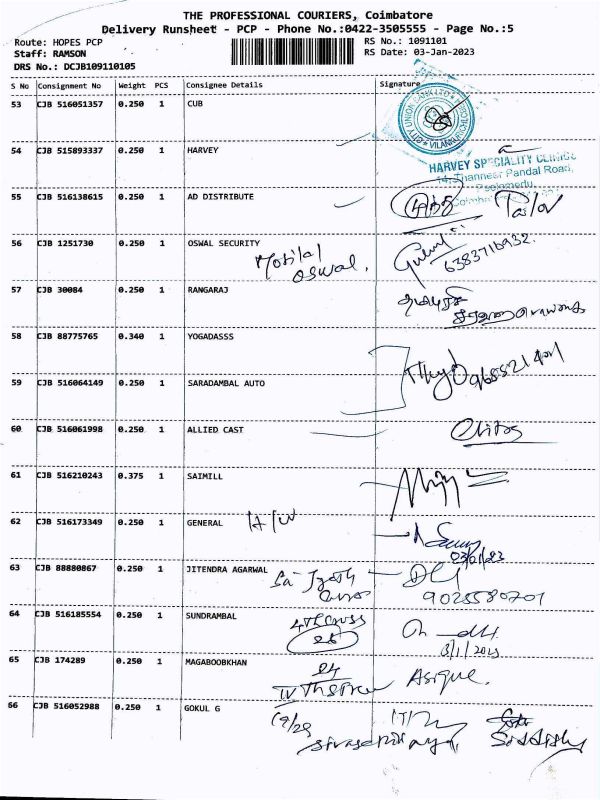 THE PROFESSIONAL COURIERS, Coimbatore
Delivery Runsheet - PCP - Phone No.:0422-3505555 - Page No.:5
Route: HOPES PCP RS No.: 1091101
Staff: RAMSON RS Date: 03-Jan-2023
DRS No.: DCJB109110105
S No Consignment No Weight PCS Consignee Details Signature
53 CJB 516051357 0.250 1 CUB
CITY UNION BANK LTD
54 CJB 515893337 0.250 1 HARVEY
HARVEY SPECIALITY CLINICS
Thanneer Pandal Road,
55 CJB 516138615 0.250 1 AD DISTRIBUTE
56 CJB 1251730 0.250 1 OSWAL SECURITY
Motilal
oswal. 6383716932.
57 CJB 30084 0.250 1 RANGARAJ
58 CJB 88775765 0.340 1 YOGADASSS
59 CJB 516064149 0.250 1 SARADAMBAL AUTO
60 CJB 516061998 0.250 1 ALLIED CAST
61 CJB 516210243 0.375 1 SAIMILL
62 CJB 516173349 0.250 1 GENERAL H/W
03/01/23
63 CJB 88880867 0.250 1 JITENDRA AGARWAL
9025580701
64 CJB 516185554 0.250 1 SUNDRAMBAL 4th cross
3/1/2023
65 CJB 174289 0.250 1 MAGABOOKHAN 24
Asique.
66 CJB 516052988 0.250 1 GOKUL G